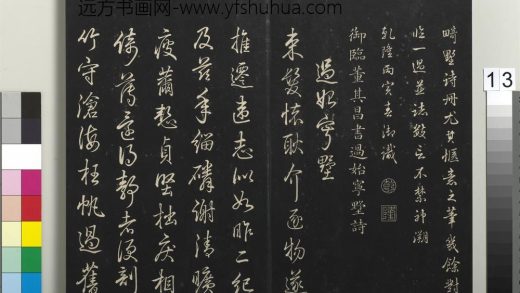 远方书画网- www.yfshuhua.com
墅詩冊尤其愜意之筆幾餘對
臨一過並誌數言不禁神溯
乾隆丙寅春御識
御臨董其昌書過始寧墅詩
過始寧墅
束髮懷耿介逐物遂
推遷違志似如昨二紀
及茲年緇磷謝清曠
疲薾慙貞堅拙疾相
倚薄還得靜者便剖
竹守滄海枉帆過舊
13